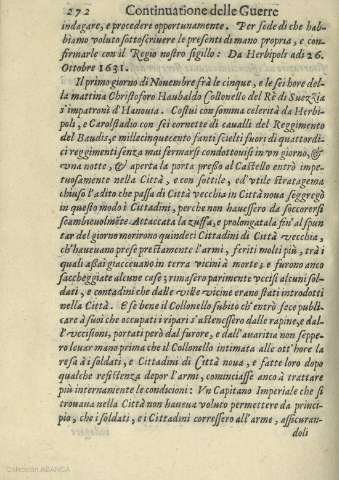 272 Continuatione delle Guerre
indagare, e procedere opportunamente. Per fede di che hab-
biamo voluto sottoscriuere le presenti di mano propria, e con-
firmarle con il Regio nostro sigillo: Da Herbipoli adi 26.
Ottobre 1631.
Il primo giorno di Nouembre frà le cinque, e le sei hore del-
la mattina Christoforo Haubaldo Collonello del Rè di Suezzia
s'impatronì d'Hanouia. Costui con somma celerità da Herbi-
poli, e Carolstadio con sei cornette di caualli del Reggimento
del Baudis, e millecinquecento fanti scielti fuori di quattordi-
ci reggimenti senza mai fermarsi condottouisi in vn giorno, &
vna notte, & aperta la porta presso al Castello entrò impe-
tuosamente nella Città, e con sottile, ed vtile stratagema
chiuso l'adito che passa di Città vecchia in Città noua seggregò
in questo modo i Cittadini, perche non hauessero da soccorersi
scambieuolmēte. Attaccata la zuffa, e prolongatala fin' al spun
tar del giorno morirono quindeci Cittadini di Città vecchia,
ch'haueuano prese prestamente l'armi, feriti molti più, trà i
quali assai giaceuano in terra vicini à morte; e furono anco
saccheggiate alcune case; rimasero parimente vccisi alcuni sol-
dati, e contadini che dalle ville vicine erano stati introdotti
nella Città. E se bene il Collonello subito ch'entrò fece publi-
care à suoi che occupati i ripari s'astenessero dalle rapine, e dal-
l'vccisioni, portati però dal furore, e dall'auaritia non seppe-
ro leuar mano prima che il Collonello intimata alle ott'hore la
resa à i soldati, e Cittadini di Città noua, e fatte loro dopo
qualche resistenza depor l'armi, cominciasse anco à trattare
più internamente le condicioni: Vn Capitano Imperiale che si
trouaua nella Città non haueua voluto permettere da princi-
pio, che i soldati, e i Cittadini corressero all'arme, assicuran-
doli
Colección ABANCA